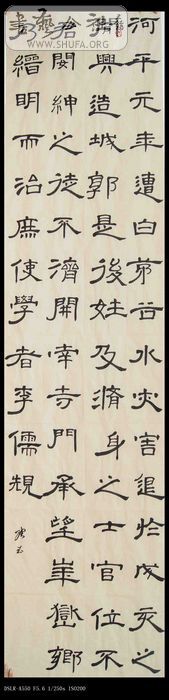 WWW.SHUFA.ORG
河平元年遭白茅谷水灾害退於戌亥之
興造城郭是後姓及濟身之士官位不
閔紳之徒不濟開寺門承望華嶽鄉
明而治庶使學者李儒規
DSLR-A550 F5.6 1/250s ISO200